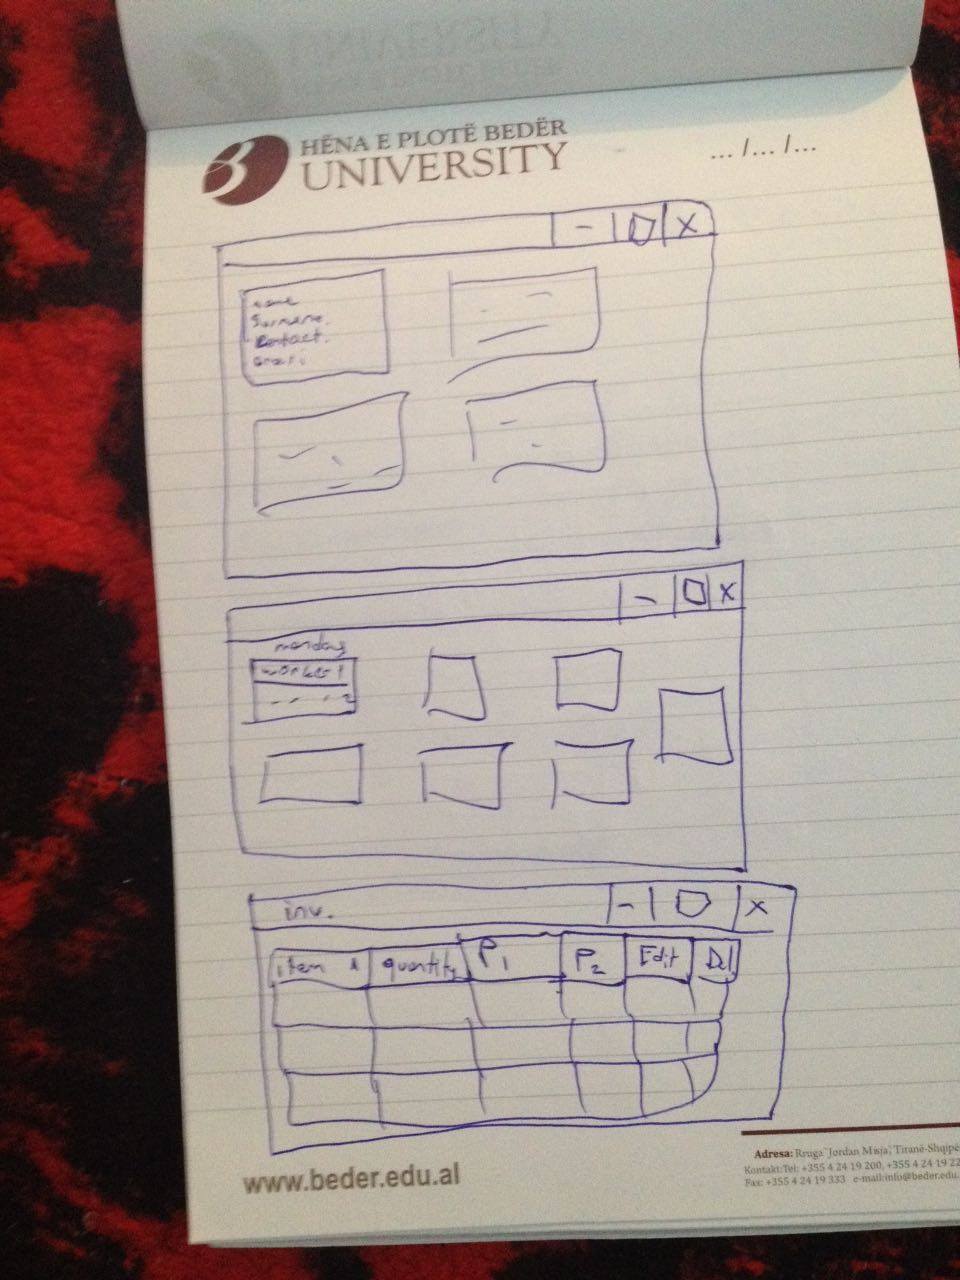 HËNA E PLOTË BEDËR
UNIVERSITY
... /... /...
- X
name
Surname.
Contact.
- X
monday
worker 1
2
inv.
- X
item quantity P1 P2 Edit Del
www.beder.edu.al
Adresa: Rruga "Jordan Misja", Tiranë-Shqipë
Kontakt:Tel: +355 4 24 19 200, +355 4 24 19 22
Fax: +355 4 24 19 333 e-mail:info@beder.edu.